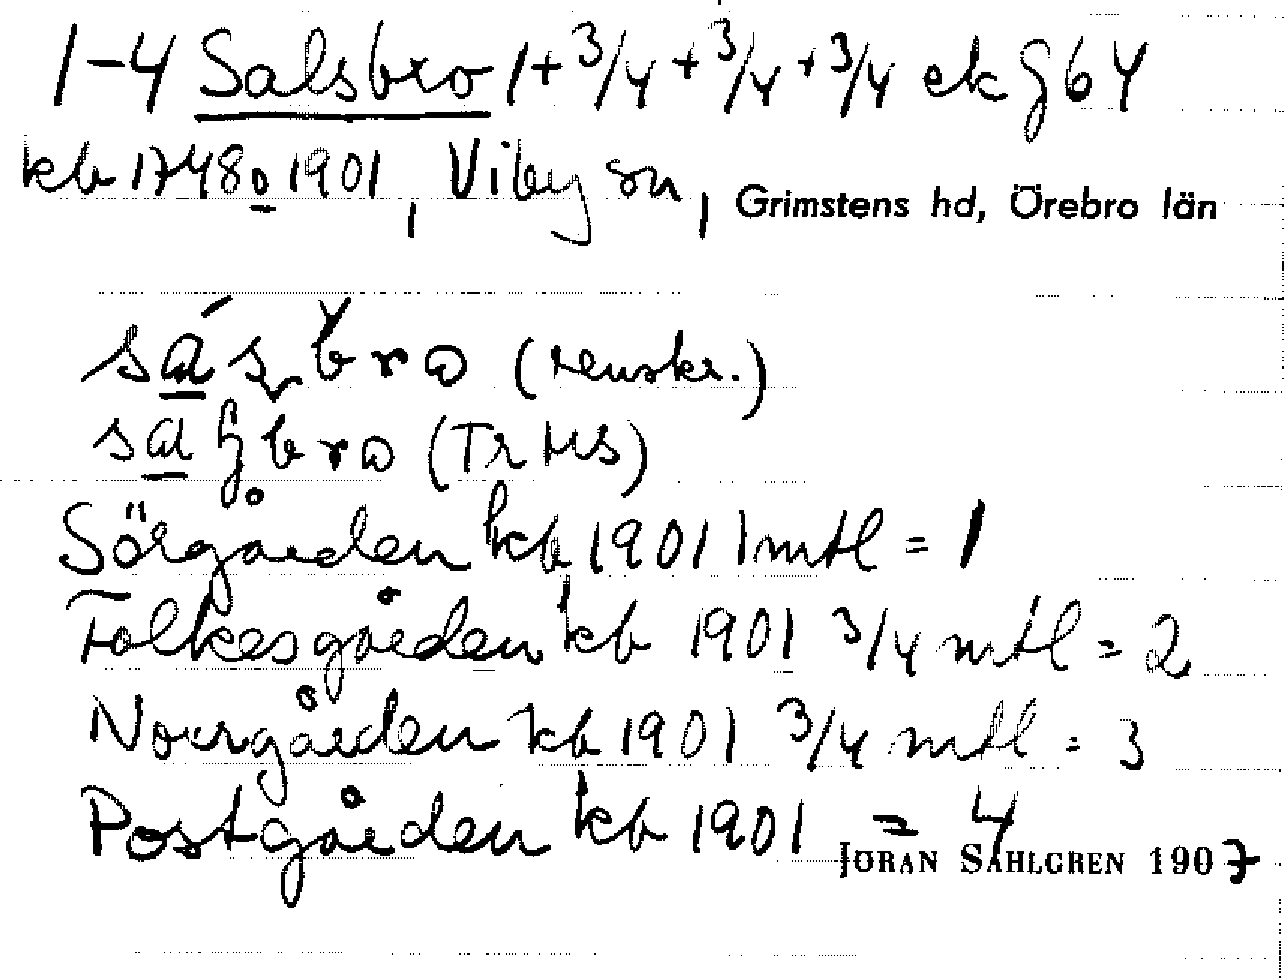 1-4 Salsbro 1+3/4+3/4+3/4 ek G 64
kb 1748 o 1901, Viby sn, Grimstens hd, Örebro län
(renskr.)
(Tr MS)
Sörgården kb 1901 1 mtl = 1
Folkesgården kb 1901 3/4 mtl = 2
Norrgården kb 1901 3/4 mtl = 3
Postgården kb 1901 = 4
JÖRAN SAHLGREN 1907